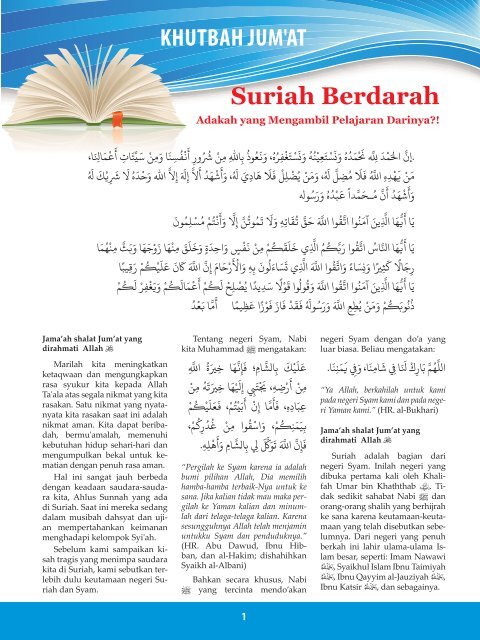 KHUTBAH JUM'AT
Suriah Berdarah
Adakah yang Mengambil Pelajaran Darinya?!
إِنَّ الْحَمْدَ لِلَّهِ نَحْمَدُهُ وَنَسْتَعِيْنُهُ وَنَسْتَغْفِرُهُ، وَنَعُوذُ بِاللهِ مِنْ شُرُورِ أَنْفُسِنَا وَمِنْ سَيِّئَاتِ أَعْمَالِنَا،
مَنْ يَهْدِهِ اللَّهُ فَلَا مُضِلَّ لَهُ، وَمَنْ يُضْلِلْ فَلَا هَادِيَ لَهُ، وَأَشْهَدُ أَلاَّ إِلَهَ إِلاَّ الله وَحْدَهُ لَا شَرِيْكَ لَهُ
وَأَشْهَدُ أَنَّ مُحَمَّداً عَبْدُهُ وَرَسُوله
يَا أَيُّهَا الَّذِينَ آمَنُوا اتَّقُوا اللَّهَ حَقَّ تُقَاتِهِ وَلَا تَمُوتُنَّ إِلَّا وَأَنْتُمْ مُسْلِمُونَ
يَا أَيُّهَا النَّاسُ اتَّقُوا رَبَّكُمُ الَّذِي خَلَقَكُمْ مِنْ نَفْسٍ وَاحِدَةٍ وَخَلَقَ مِنْهَا زَوْجَهَا وَبَثَّ مِنْهُمَا
رِجَالًا كَثِيرًا وَنِسَاءً وَاتَّقُوا اللَّهَ الَّذِي تَسَاءَلُونَ بِهِ وَالْأَرْحَامَ إِنَّ اللَّهَ كَانَ عَلَيْكُمْ رَقِيبًا
يَا أَيُّهَا الَّذِينَ آمَنُوا اتَّقُوا اللَّهَ وَقُولُوا قَوْلًا سَدِيدًا يُصْلِحْ لَكُمْ أَعْمَالَكُمْ وَيَغْفِرْ لَكُمْ
ذُنُوبَكُمْ وَمَنْ يُطِعِ اللَّهَ وَرَسُولَهُ فَقَدْ فَازَ فَوْزًا عَظِيمًا أَمَّا بَعْدُ
Jama'ah shalat Jum'at yang
dirahmati Allah ﷻ
Marilah kita meningkatkan
ketaqwaan dan mengungkapkan
rasa syukur kita kepada Allah
Ta'ala atas segala nikmat yang kita
rasakan. Satu nikmat yang nyata-
nyata kita rasakan saat ini adalah
nikmat aman. Kita dapat beriba-
dah, bermu'amalah, memenuhi
kebutuhan hidup sehari-hari dan
mengumpulkan bekal untuk ke-
matian dengan penuh rasa aman.
Hal ini sangat jauh berbeda
dengan keadaan saudara-sauda-
ra kita, Ahlus Sunnah yang ada
di Suriah. Saat ini mereka sedang
dalam musibah dahsyat dan uji-
an mempertahankan keimanan
menghadapi kelompok Syi'ah.
Sebelum kami sampaikan ki-
sah tragis yang menimpa saudara
kita di Suriah, kami sebutkan ter-
lebih dulu keutamaan negeri Su-
riah dan Syam.
Tentang negeri Syam, Nabi
kita Muhammad ﷺ mengatakan:
عَلَيْكَ بِالشَّامِ؛ فَإِنَّهَا خِيَرَةُ اللَّهِ
مِنْ أَرْضِهِ، يَجْتَبِي إِلَيْهَا خِيَرَتَهُ مِنْ
عِبَادِهِ، فَأَمَّا إِنْ أَبَيْتُمْ، فَعَلَيْكُمْ
بِيَمَنِكُمْ، وَاسْقُوا مِنْ غُدُرِكُمْ،
فَإِنَّ اللَّهَ تَوَكَّلَ لِي بِالشَّامِ وَأَهْلِهِ.
"Pergilah ke Syam karena ia adalah
bumi pilihan Allah, Dia memilih
hamba-hamba terbaik-Nya untuk ke
sana. Jika kalian tidak mau maka per-
gilah ke Yaman kalian dan minum-
lah dari telaga-telaga kalian. Karena
sesungguhnya Allah telah menjamin
untukku Syam dan penduduknya."
(HR. Abu Dawud, Ibnu Hib-
ban, dan al-Hakim; dishahihkan
Syaikh al-Albani)
Bahkan secara khusus, Nabi
ﷺ yang tercinta mendo'akan
negeri Syam dengan do'a yang
luar biasa. Beliau mengatakan:
اللَّهُمَّ بَارِكْ لَنَا فِي شَامِنَا، وَفِي يَمَنِنَا.
"Ya Allah, berkahilah untuk kami
pada negeri Syam kami dan pada nege-
ri Yaman kami." (HR. al-Bukhari)
Jama'ah shalat Jum'at yang
dirahmati Allah ﷻ
Suriah adalah bagian dari
negeri Syam. Inilah negeri yang
dibuka pertama kali oleh Khali-
fah Umar bin Khaththab . Ti-
dak sedikit sahabat Nabi ﷺ dan
orang-orang shalih yang berhijrah
ke sana karena keutamaan-keuta-
maan yang telah disebutkan sebe-
lumnya. Dari negeri yang penuh
berkah ini lahir ulama-ulama Is-
lam besar, seperti: Imam Nawawi
, Syaikhul Islam Ibnu Taimiyah
, Ibnu Qayyim al-Jauziyah ,
Ibnu Katsir , dan sebagainya.
1